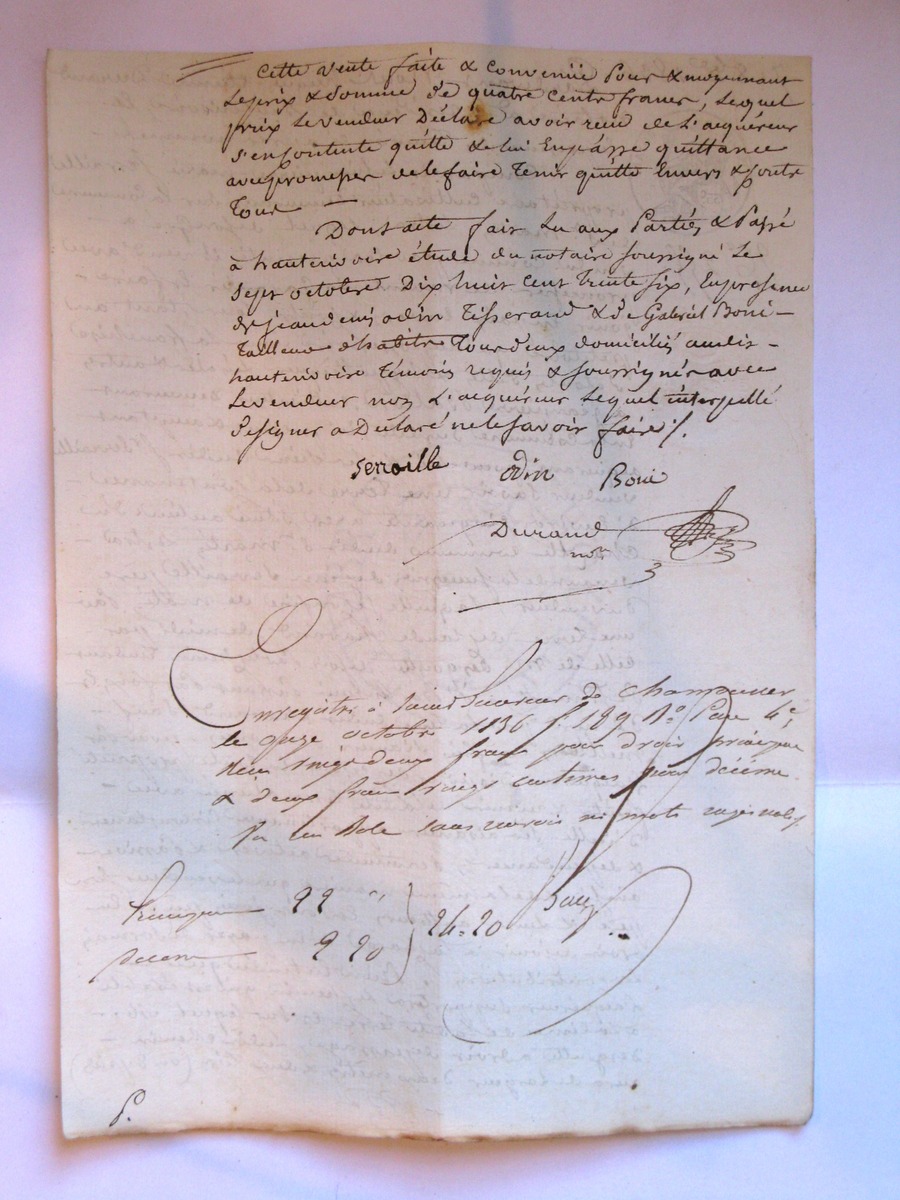 Cette vente faite & convenüe pour & moyennant
le prix & somme de quatre cents francs, lequel
prix le vendeur Déclare avoir reçu de l'acquéreur
s'en contente quitte & de lui En passe quittance
avec promesse de le faire Tenir quitte Envers & contre
Tous
Dont acte fait Lu aux Parties & Passé
à hauterivoire étude du notaire soussigné Le
Sept octobre Dix huit cent Trente Six, En presence
de jean denis odin Tisserand & de Gabriel Boni
Tailleur d'habits Tous deux domiciliés audit
hauterivoire Témoins requis & soussignés avec
Le vendeur non L'acquéreur Lequel interpellé
De signer a Déclaré ne le savoir faire /.
Senoille odin Boni
Durand
not.
Enregistré à
le onze octobre 1836 f° 189 R° Case 4e,
Reçu vingt deux francs pour droit principal
& deux francs vingt centimes pour décime.
un Role sans renvois ni mots rayés nuls
Principal 22 "
24-20
décime 2 20
P.